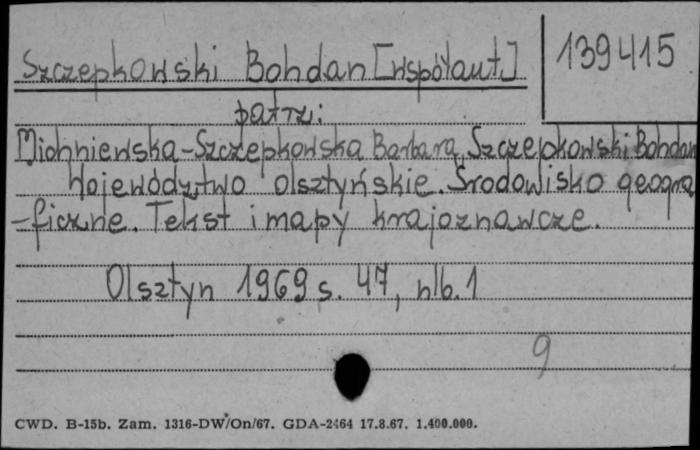 Szczepkowski Bohdan [współaut.]
139415
patrz:
Michniewska-Szczepkowska Barbara, Szczepkowski Bohdan
Województwo olsztyńskie. Środowisko geogra
-ficzne. Tekst i mapy krajoznawcze.
Olsztyn 1969 s. 47, nlb. 1
9
CWD. B-15b. Zam. 1316-DW/On/67. GDA-2464 17.8.67. 1.400.000.